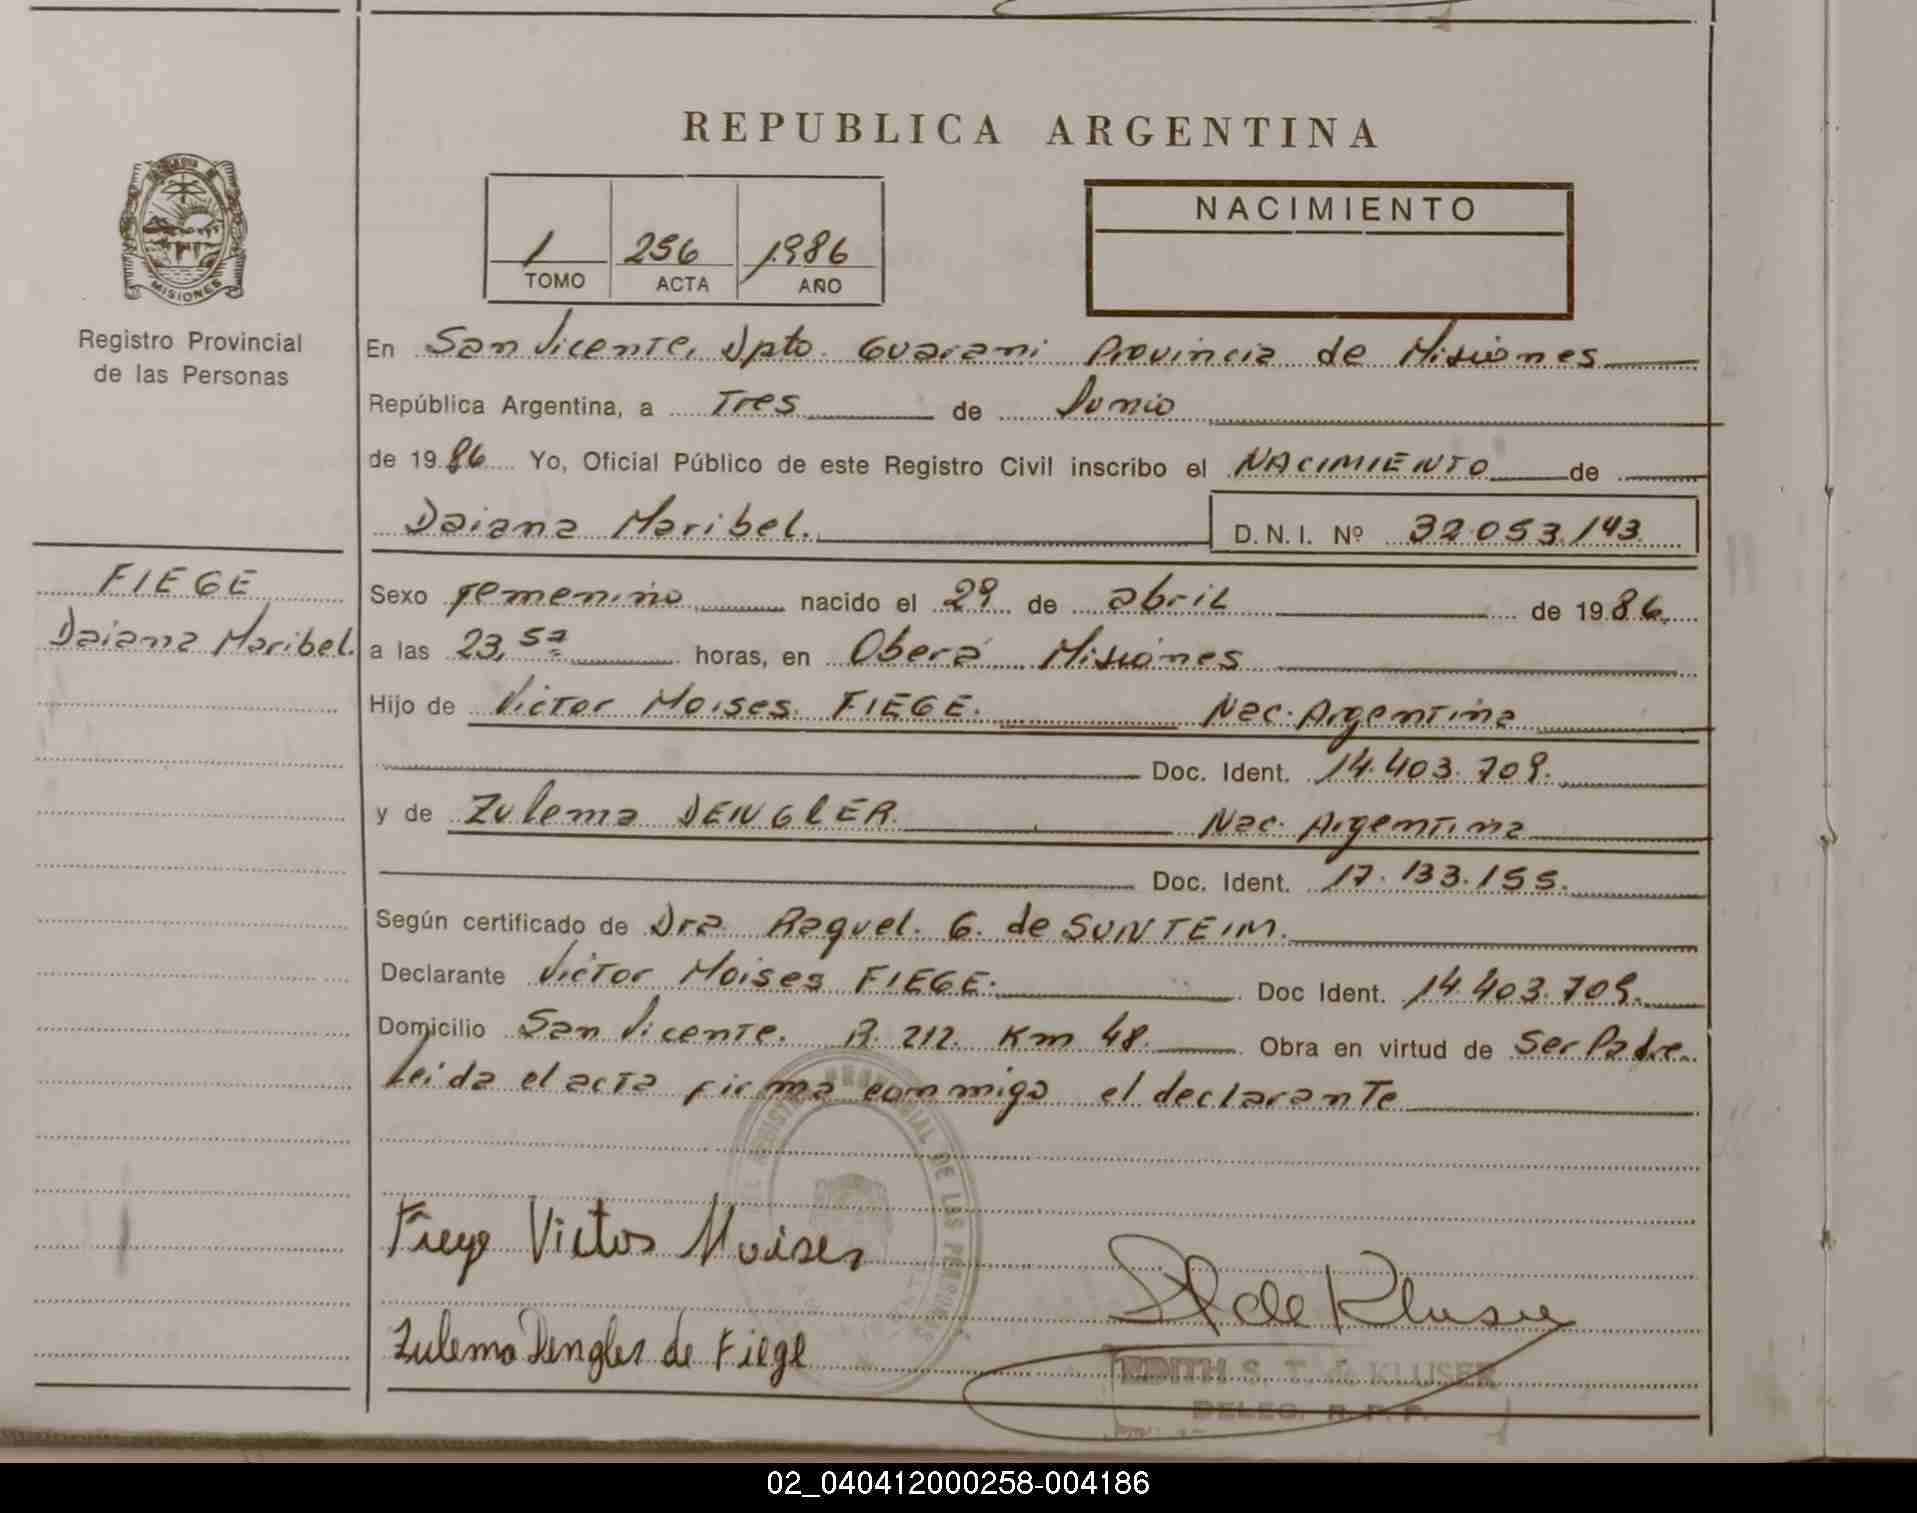 REPUBLICA ARGENTINA
MISIONES
Registro Provincial
de las Personas
1 256 1986
TOMO ACTA AÑO
NACIMIENTO
En San Vicente, Dpto. Guarani Provincia de Misiones
República Argentina, a Tres de Junio
de 1986 Yo, Oficial Público de este Registro Civil inscribo el NACIMIENTO de
Daiana Maribel. D.N.I. Nº 32.053.143
FIEGE
Daiana Maribel.
Sexo Femenino nacido el 29 de abril de 1986.
a las 23, horas, en Oberá Misiones
Hijo de Victor Moises FIEGE. Nac. Argentina
Doc. Ident. 14.403.709.
y de Zulema DENGlER Nac. Argentina
Doc. Ident. 17.133.155.
Según certificado de Dra Raquel. G. de SUNTEIM.
Declarante Victor Moises FIEGE. Doc Ident. 14.403.709.
Domicilio San Vicente. R. 212. Km 48. Obra en virtud de Ser Padre
Leida el acta firma conmigo el declarante
REGISTRO PROVINCIAL DE LAS PERSONAS
Fiege Victor Moises
de Kluser
Zulema Dengler de Fiege
EDITH S. T. d. KLUSER
DELEG. R. P. P.
02_040412000258-004186